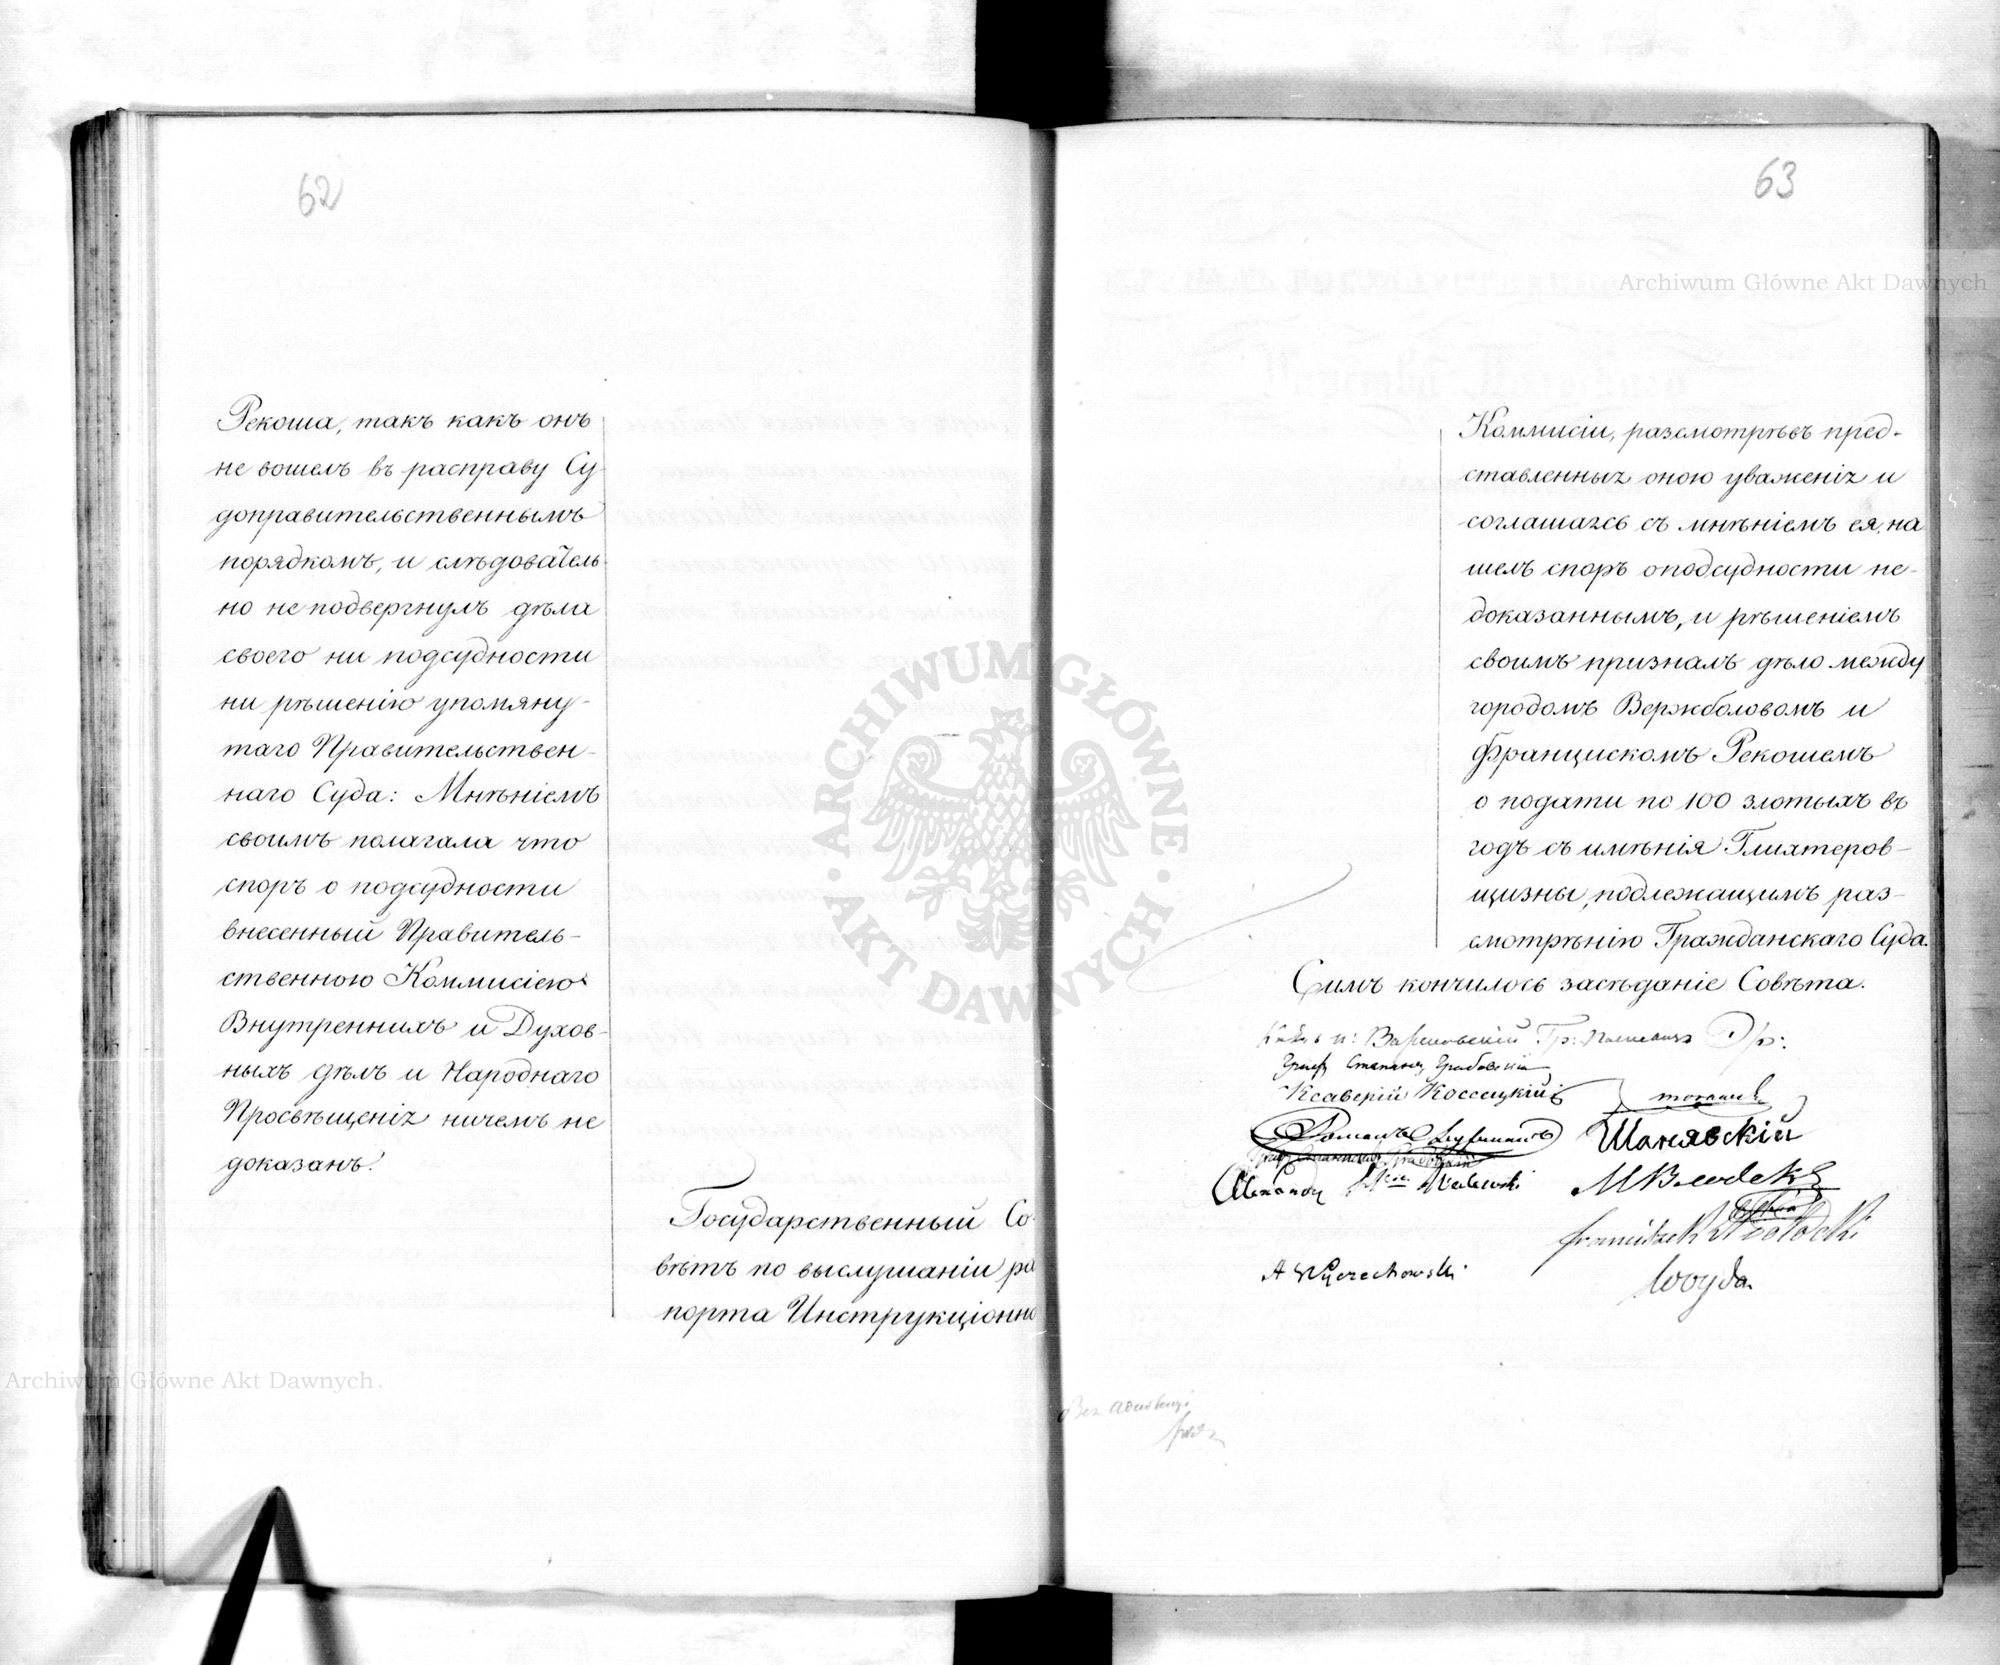 62
Рекоша, такъ какъ онъ
не вошелъ въ расправу Су-
доправительственнымъ
порядкомъ, и слѣдователь-
но не подвергнулъ дѣла
своего ни подсудности
ни рѣшенію упомяну-
таго Правительствен-
наго Суда: Мнѣніемъ
своимъ полагала что
споръ о подсудности
внесенный Правитель-
ственною Коммисіею
Внутреннихъ и Духов-
ныхъ дѣлъ и Народнаго
Просвѣщенія ничемъ не
доказанъ.
Государственный Со-
вѣтъ по выслушаніи ра
порта Инструкціонно
63
Коммисіи, разсмотрѣвъ пред-
ставленныя оною уваженія и
соглашаясь съ мнѣніемъ ея, на
шелъ споръ о подсудности не-
доказаннымъ, и рѣшеніемъ
своимъ призналъ дѣло между
городомъ Вержболовомъ и
Францискомъ Рекошемъ
о подати по 100 злотыхъ въ
годъ съ имѣнія Глихтеров-
щизны, подлежащимъ раз-
смотрѣнію Гражданскаго Суда.
Симъ кончилось засѣданіе Совѣта.
Варшавскій Гр:
Графъ Грабовскій
Ксаверій Коссецкій
Шанявскій
A Wyczechowski
Franciszek Potocki
Woyda.
Archiwum Główne Akt Dawnych
Archiwum Główne Akt Dawnych
ARCHIWUM GŁÓWNE
AKT DAWNYCH